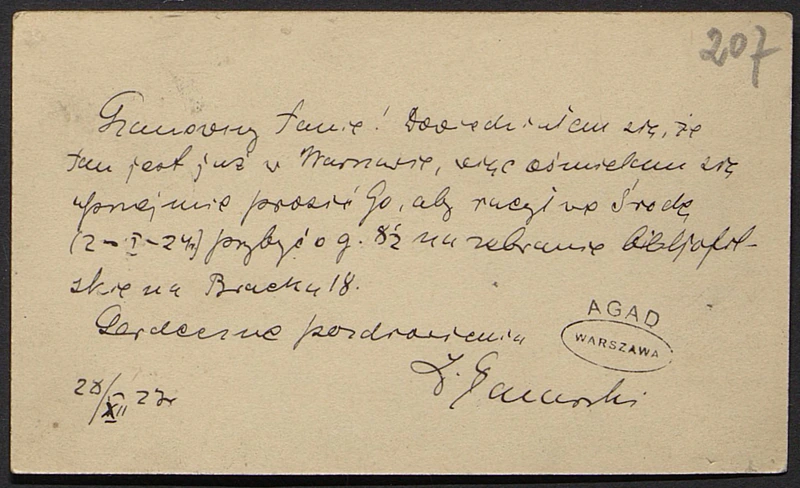 207
Szanowny Panie! Dowiedziałam się, że
Pan jest już w Warszawie, więc ośmielam się
uprzejmie prosić Go, aby raczył we Środę
(2-I-24r) przybyć o g. 8½ na zebranie bibljofil-
skie na Bracką 18.
Serdeczne pozdrowienia
AGAD
WARSZAWA
28/XII 23r